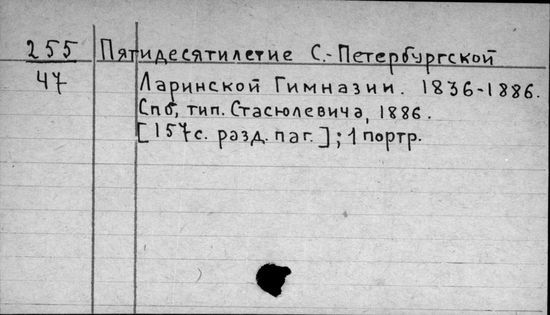 255 Пятидесятилетие С.-Петербургской
47 Ларинской Гимназии. 1836-1886.
Спб, тип. Стасюлевича, 1886.
[157с. разд. паг.]; 1 портр.